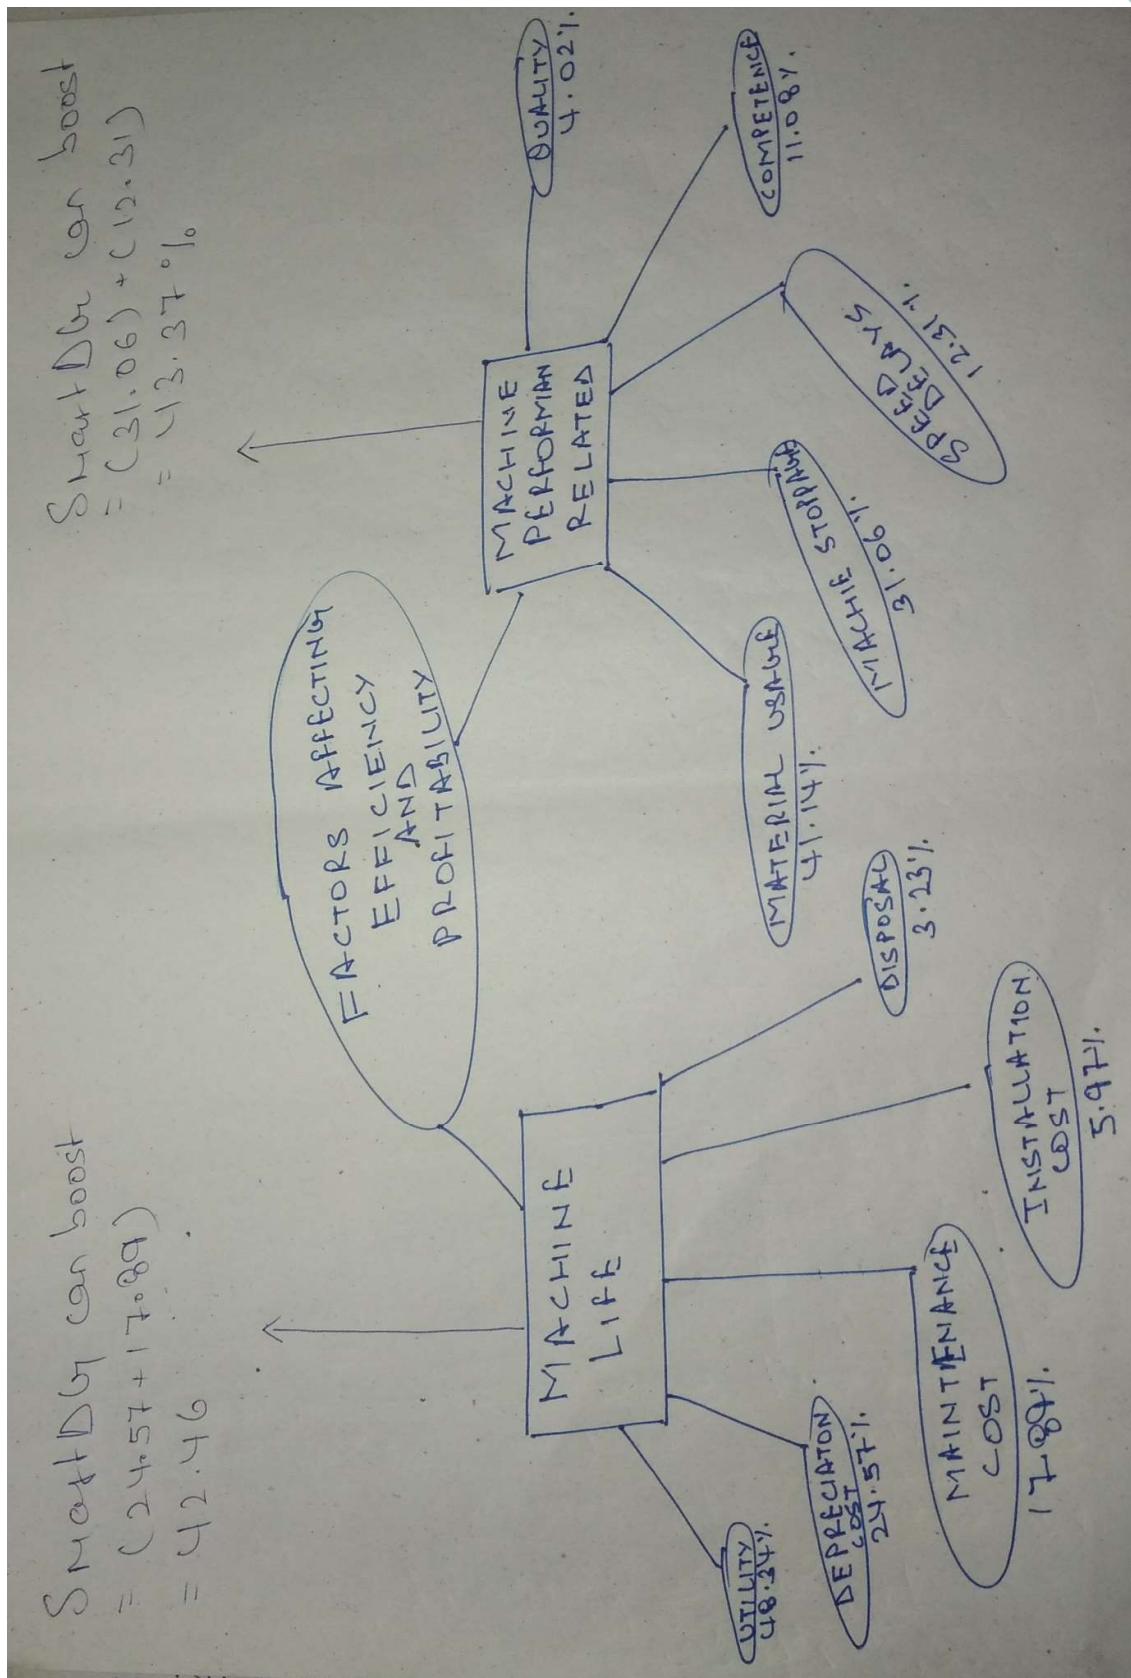 SMartDGr can boost
= (24.57+17.89)
= 42.46
SMartDGr can boost
= (31.06) + (12.31)
= 43.37%
FACTORS AFFECTING
EFFICIENCY
AND
PROFITABILITY
MACHINE
LIFE
UTILITY
48.34%
DEPRECIATON
COST
24.57%
MAINTENANCE
COST
17.89%
INSTALLATION
COST
5.97%
DISPOSAL
3.23%
MACHINE
PERFORMAN
RELATED
MATERIAL USAGE
41.14%
MACHIE STOPPAGE
31.06%
SPEED
DELAYS
12.31%
COMPETENCE
11.08%
QUALITY
4.02%